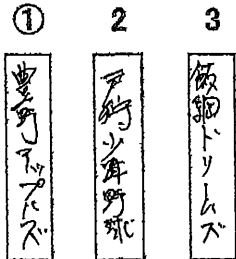 ① 2 3
豊野アップルズ
戸狩少年野球
飯綱ドリームズ